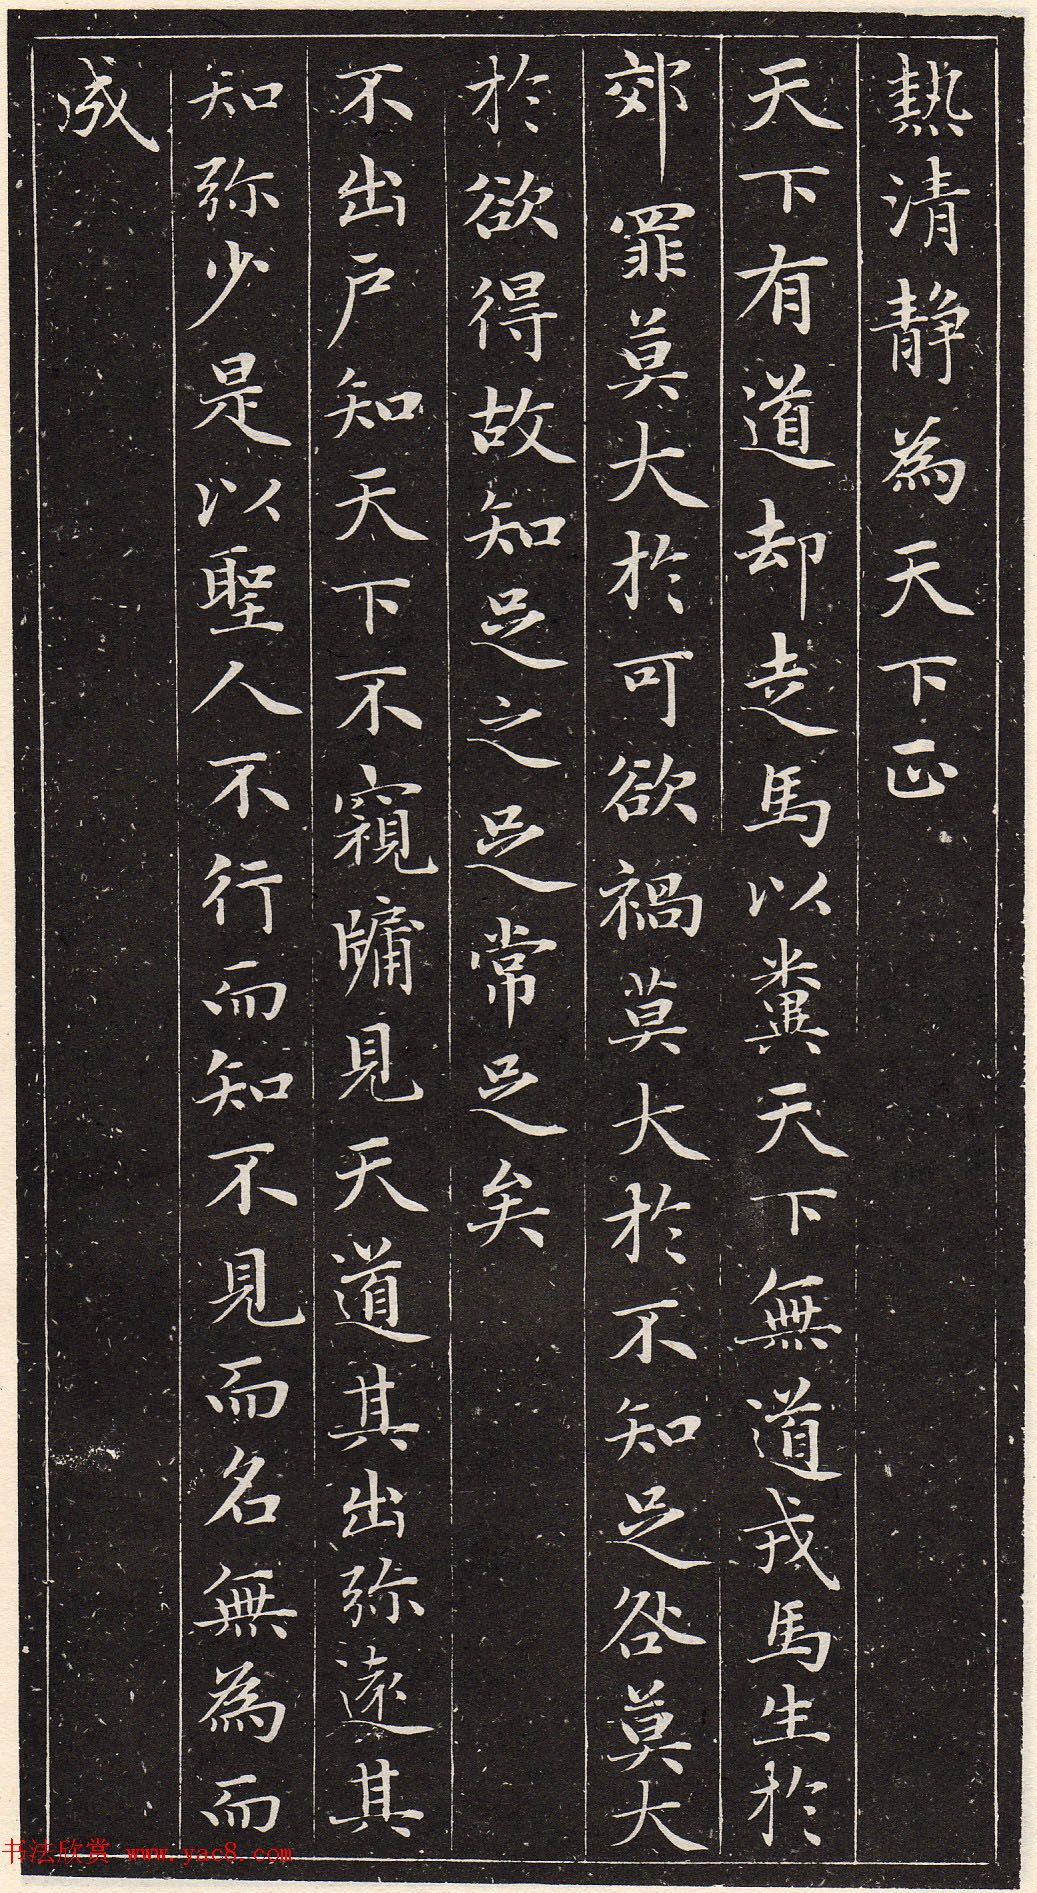 熱清靜為天下正
天下有道却走馬以糞天下無道戎馬生於
郊罪莫大於可欲禍莫大於不知足咎莫大
於欲得故知足之足常足矣
不出戶知天下不窺牖見天道其出弥遠其
知弥少是以聖人不行而知不見而名無為而
成
书法欣赏 www.yac8.com